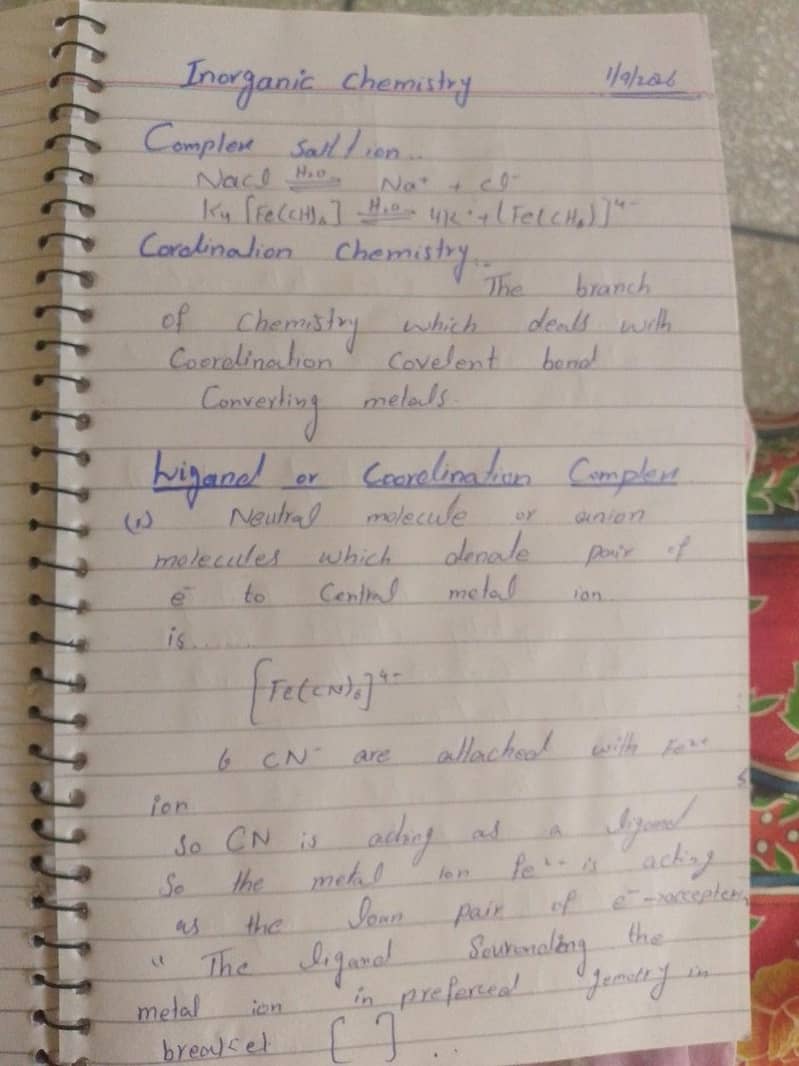 Inorganic Chemistry 1/9/2026
Complex Salt / ion..
NaCl H₂O Na⁺ + Cl⁻
K₄ [Fe(CH)₆] H₂O 4K⁺ + [Fe(CH₆)]⁴⁻
Cordination Chemistry :-
The branch
of Chemistry which deals with
Coordination Covelent bond
Converting metals.
Ligand or Coordination Complex
(1) Neutral molecule or anion
molecules which donate pair of
e⁻ to Central metal ion
is........
[Fe(CN)₆]⁴⁻
6 CN⁻ are attached with Fe²⁺
ion
So CN is acting as a ligand
So the metal ion Fe²⁺ is acting
as the loan pair of e⁻
" The ligand Sourending the
metal ion in preferced gemotry in
breakcet [ ] ..